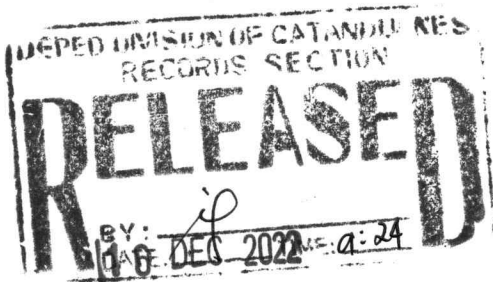 DEPED DIVISION OF CATANDU NES
RECORDS SECTION
RELEASED
BY:
DATE: DEC 2022 TIME: 9:24